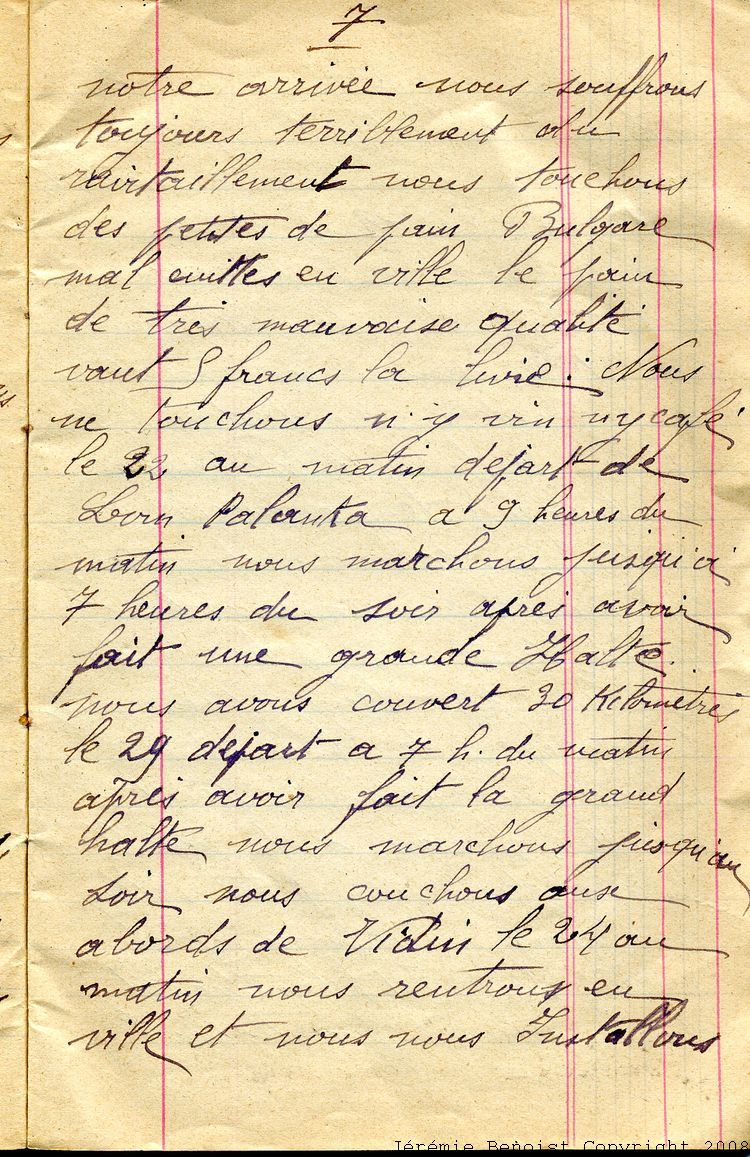 7
notre arrivée nous souffrons
toujours terriblement du
ravitaillement nous touchons
des petites de pain Bulgare
mal cuittes en ville le pain
de très mauvaise qualité
vaut 5 francs la livre. Nous
ne touchons n'y vin ny café
le 22 au matin départ de
Lom Palanka a 9 heures du
matin nous marchons jusqu'à
7 heures du soir après avoir
fait une grande Halte.
nous avons couvert 30 Kilomètres
le 29 départ a 7 h. du matin
après avoir fait la grand
halte nous marchons jusqu'au
soir nous couchons aux
abords de Vidin le 24 au
matin nous rentrons en
ville et nous nous Installons
Jérémie Benoist Copyright 2008